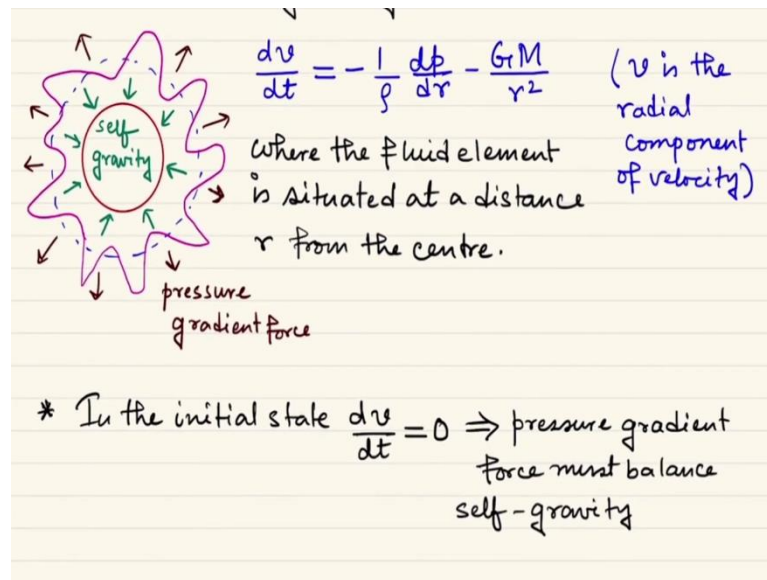 self
gravity
pressure
gradient force
dv/dt = - 1/ρ dp/dr - GM/r² (v is the
radial
component
of velocity)
where the fluid element
is situated at a distance
r from the centre.
* In the initial state dv/dt = 0 ⇒ pressure gradient
force must balance
self-gravity